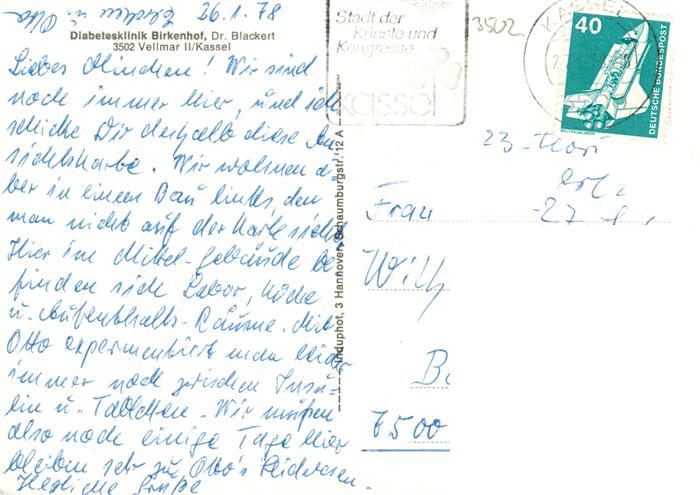 Elschen u. Otto 26.1.78
Diabetesklinik Birkenhof, Dr. Blackert
3502 Vellmar II/Kassel
Liebes Minchen! Wir sind
noch immer hier, und ich
schicke Dir deshalb diese An
sichtskarte. Wir wohnen a-
ber in einem Bau links, den
man nicht auf der Karte sieht.
Hier im Mittel-gebäude be
finden sich Labor, Küche
u. Aufenthalts-Räume. Mit
Otto experimentiert man leider
immer noch zwischen Insu-
lin u. Tabletten. Wir müssen
also noch einige Tage hier
bleiben sehr zu Otto's Leidwesen.
Herzliche Grüße
Induphot, 3 Hannover, Schaumburgstr. 12 A
Stadt der
Künste und
Kongresse
kassel
3502
KASSEL
40
DEUTSCHE BUNDESPOST
WELTRAUMLABOR
23.
Frau
27.
Wilh
B
7500